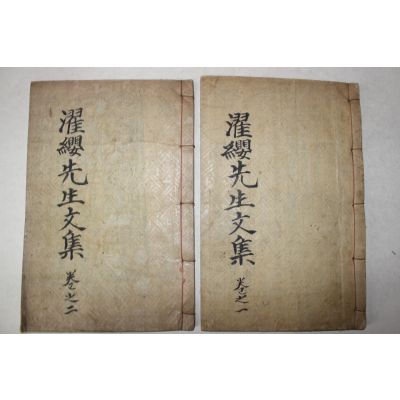 濯纓先生文集
卷之一
濯纓先生文集
卷之二